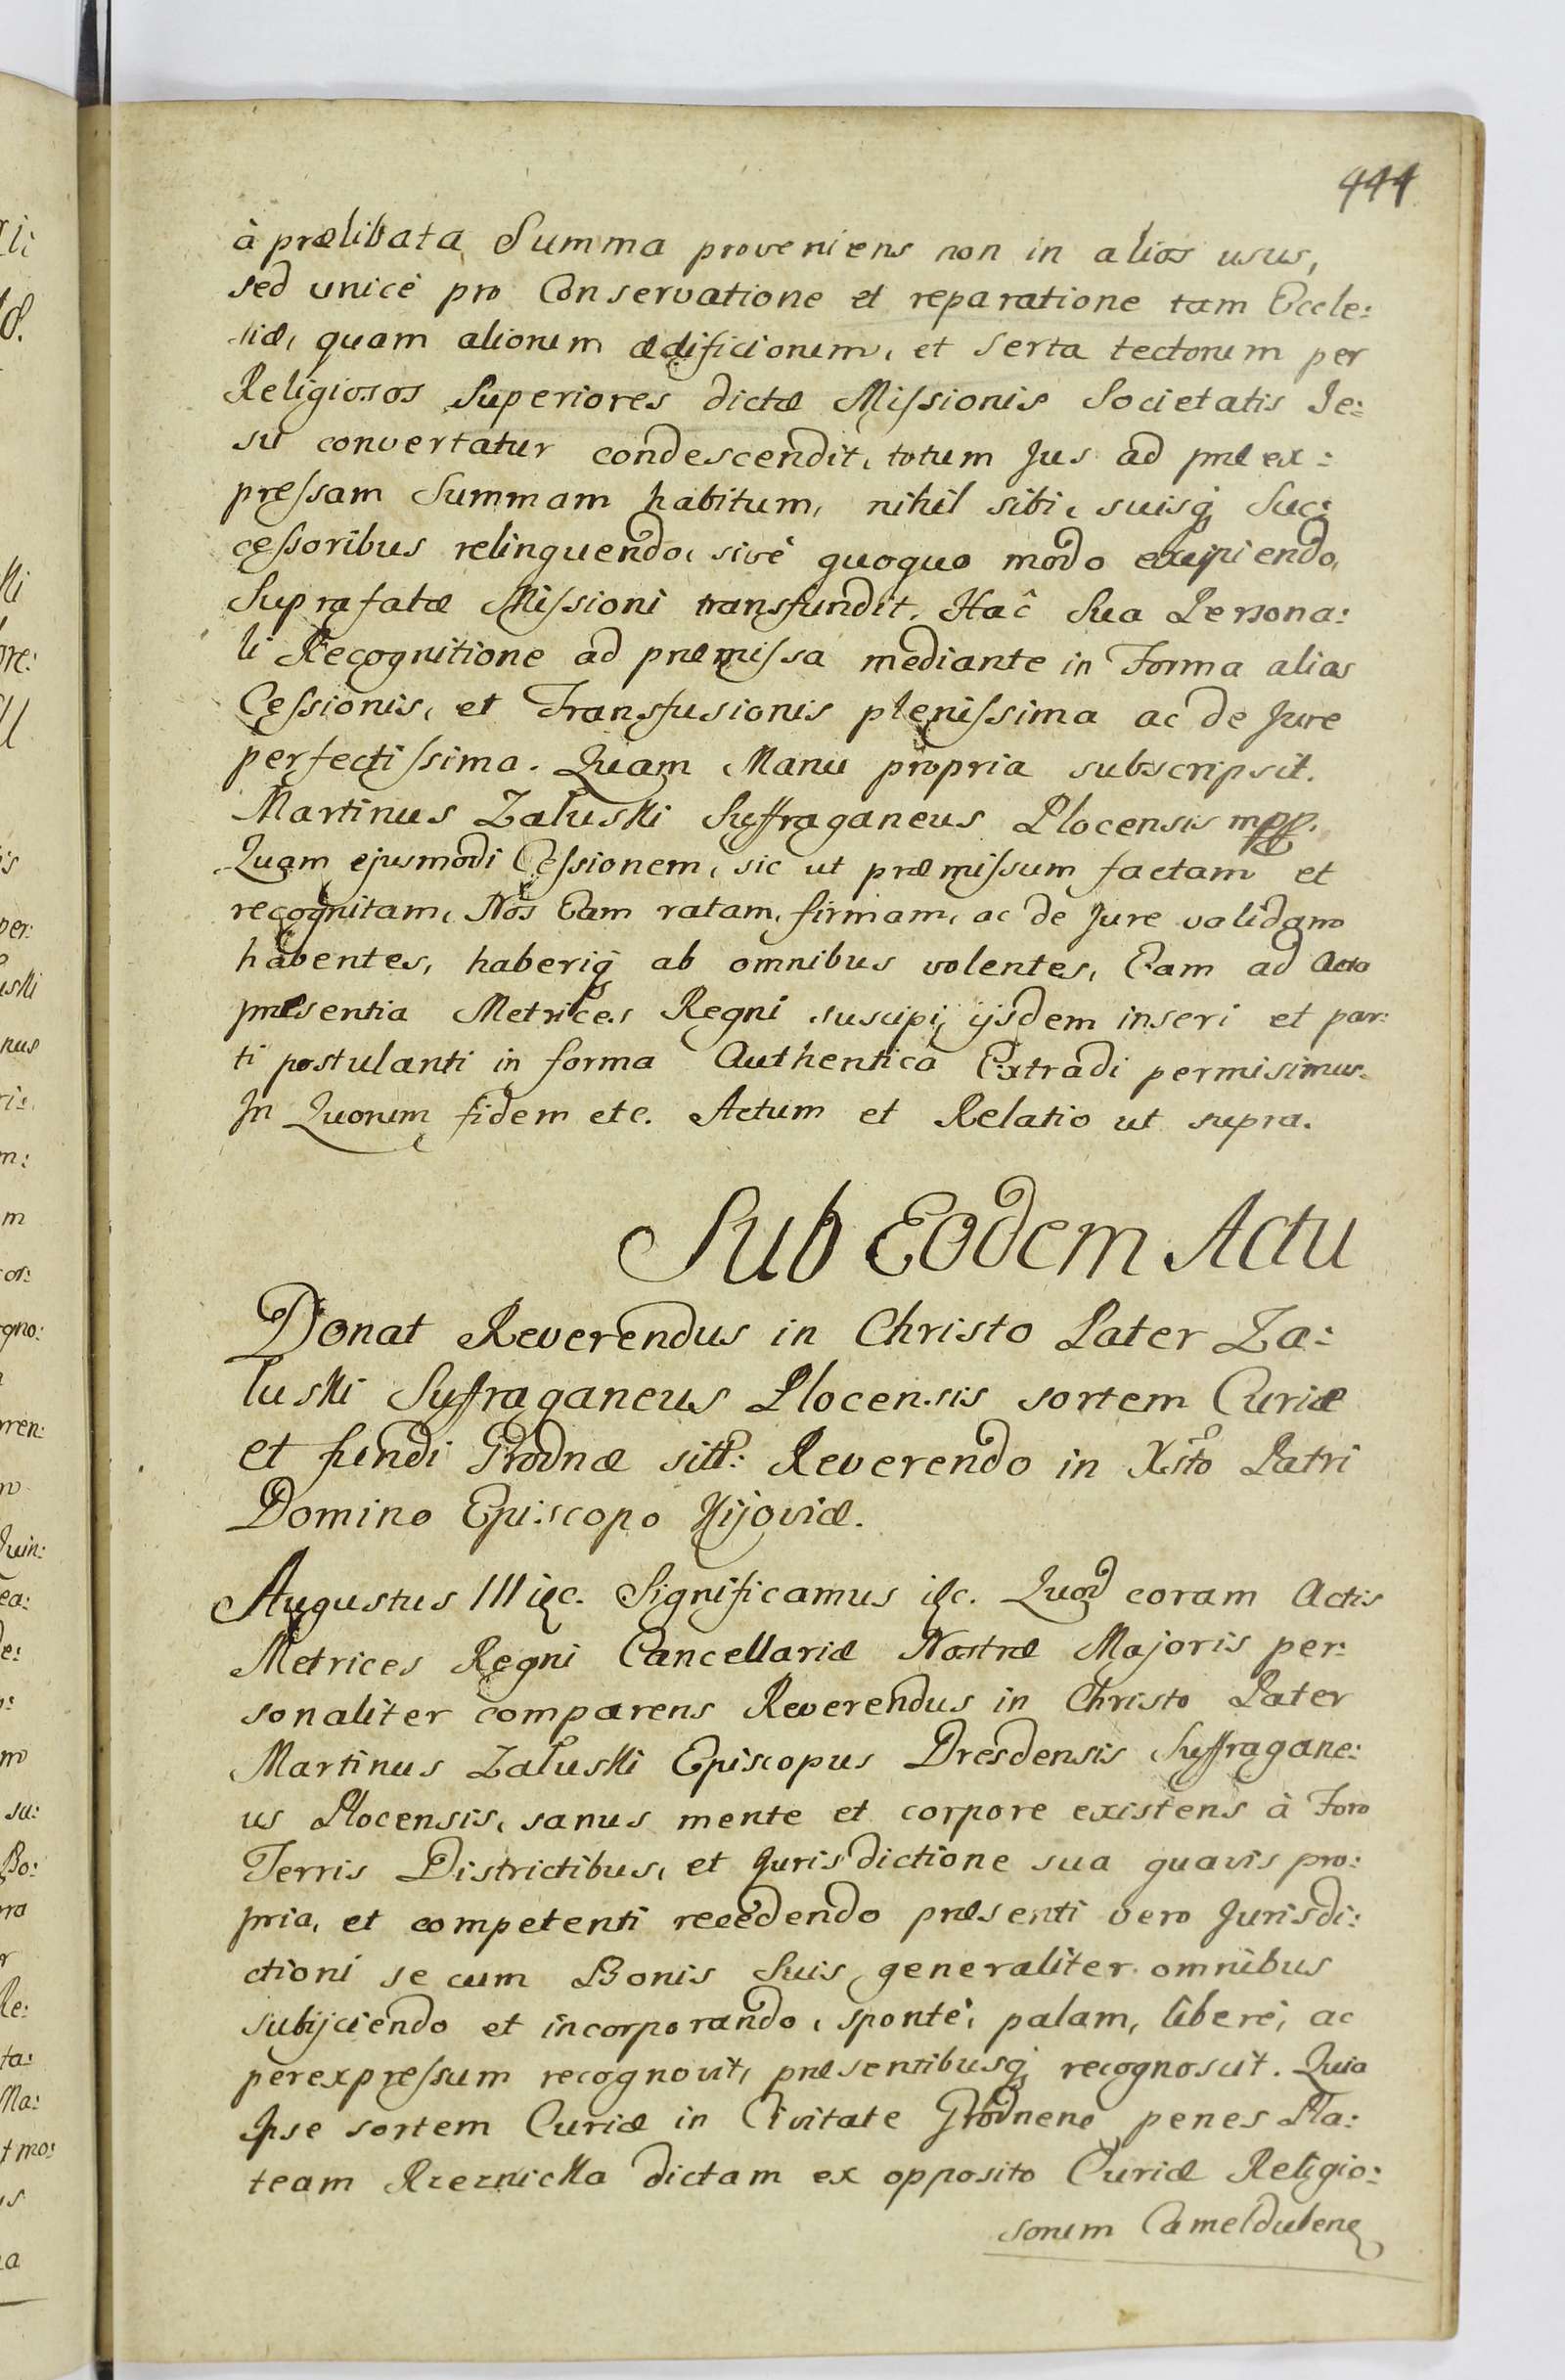 444
à prælibata Summa proveniens non in alios usus,
sed unicè pro Conservatione et reparatione tam Eccle:
siæ, quam aliorum ædificiorum, et serta tectorum per
Religiosos Superiores dictæ Missionis Societatis Je:
su convertatur condescendit, totum Jus ad præex:
pressam Summam habitum, nihil sibi, suisq, Suc:
cessoribus relinquendo, sivè quoquo modo excipiendo,
Suprafatæ Missioni transfundit. Hac Sua Persona:
li Recognitione ad præmissa mediante in Forma alias
Cessionis, et Transfusionis plenissima ac de Jure
perfectissima. Quam Manu propria subscripsit.
Martinus Załuski Suffraganeus Plocensis mpp.
Quam ejusmodi Cessionem, sic ut præmissum factam et
recognitam, Nos Eam ratam, firmam, ac de Jure validam
habentes, haberiq, ab omnibus volentes, Eam ad Acta
præsentia Metrices Regni suscipi, ijsdem inseri et par:
ti postulanti in forma Authentica Extradi permisimus.
In Quorum fidem etc. Actum et Relatio ut supra.
Sub Eodem Actu
Donat Reverendus in Christo Pater Za:
łuski Suffraganeus Plocensis sortem Curiæ
et fundi Grodnæ sitt: Reverendo in Xsto Patri
Domino Episcopo Kijoviæ.
Augustus III etc. Significamus etc. Quod coram Actis
Metrices Regni Cancellariæ Nostræ Majoris per:
sonaliter comparens Reverendus in Christo Pater
Martinus Załuski Episcopus Dresdensis Suffragane:
us Plocensis, sanus mente et corpore existens à Foro
Terris Districtibus, et Jurisdictione sua quavis pro:
pria, et competenti recedendo præsenti vero Jurisdi:
ctioni se cum Bonis Suis generaliter omnibus
subijciendo et incorporando, spontè, palam, liberè, ac
perexpressum recognovit, præsentibusq, recognoscit. Quia
Ipse sortem Curiæ in Civitate Grodnene penes Pla:
team Rzeznicka dictam ex opposito Curiæ Religio:
sorum Cameldulene